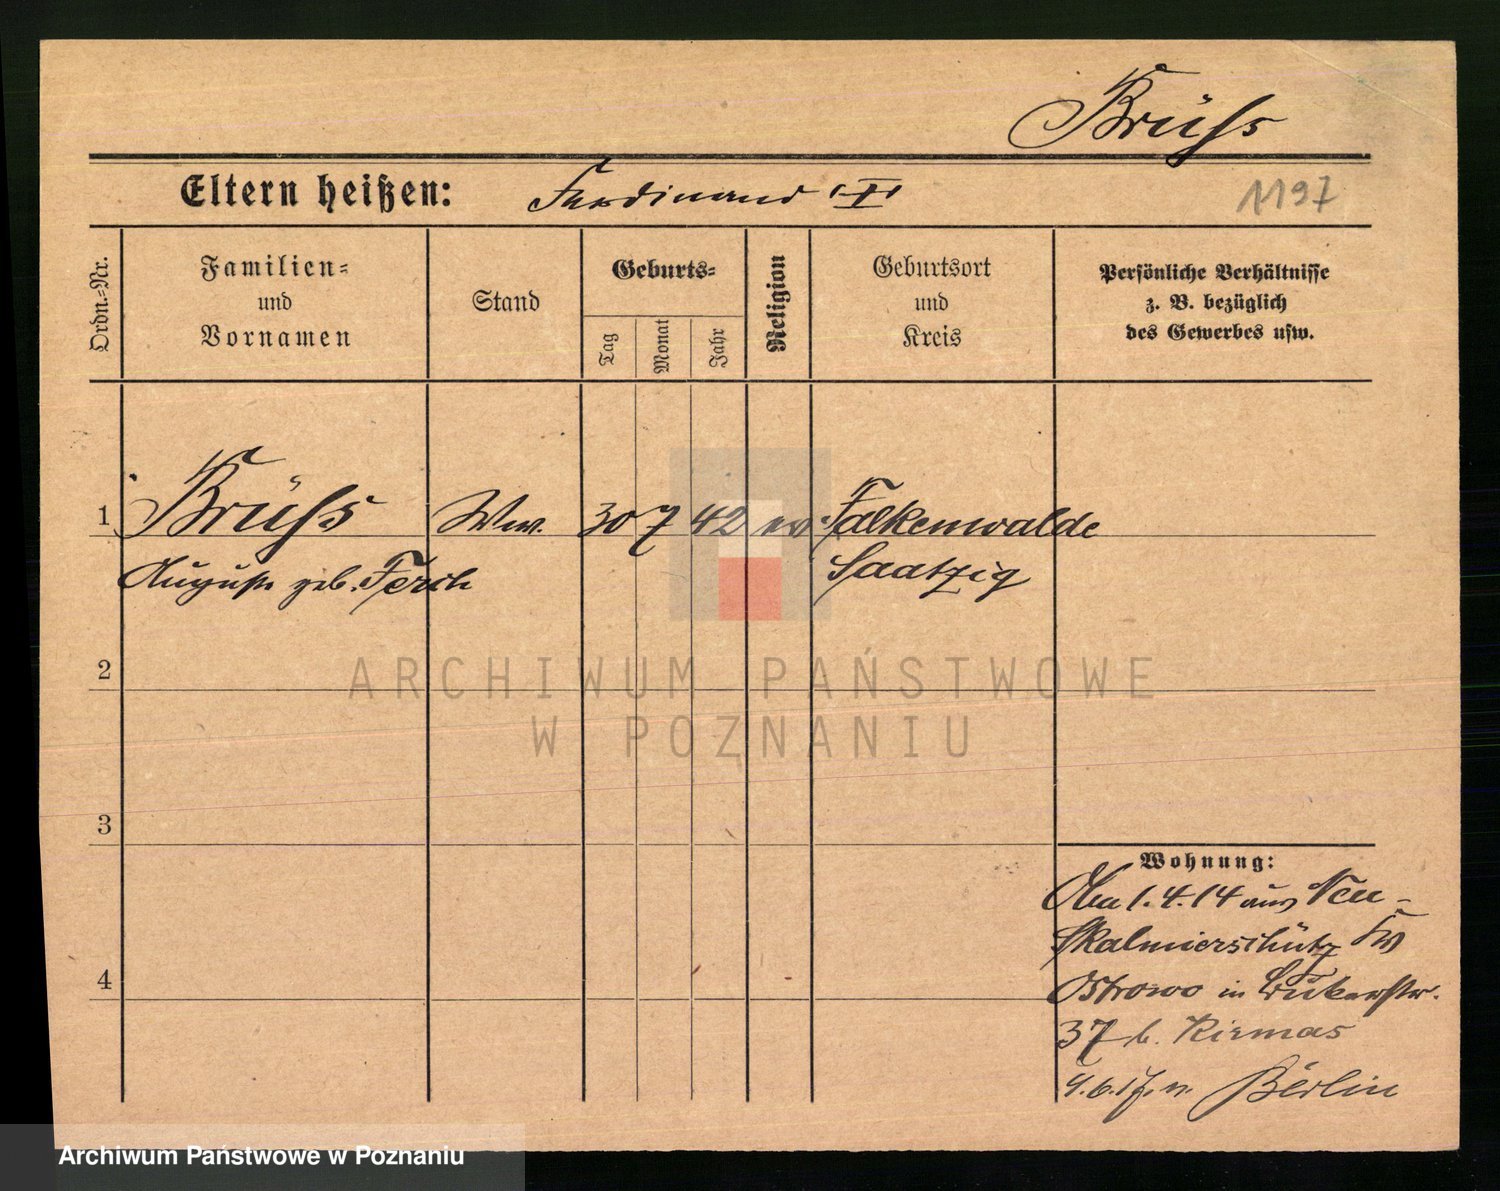 Brüss
Eltern heißen: Ferdinand
1197
Ordn.-Nr.
Familien-
und
Vornamen
Stand
Geburts-
Tag
Monat
Jahr
Religion
Geburtsort
und
Kreis
Persönliche Verhältnisse
z. B. bezüglich
des Gewerbes usw.
1 Brüss Ww. 30 7 42 ev. Falkenwalde
Auguste geb. Ferch Saatzig
2
3
4
Wohnung:
1.4.14 aus Neu-
Skalmierschütz Kr
Ostrowo in
37 b. Kirmas
n. Berlin
ARCHIWUM PAŃSTWOWE
W POZNANIU
Archiwum Państwowe w Poznaniu